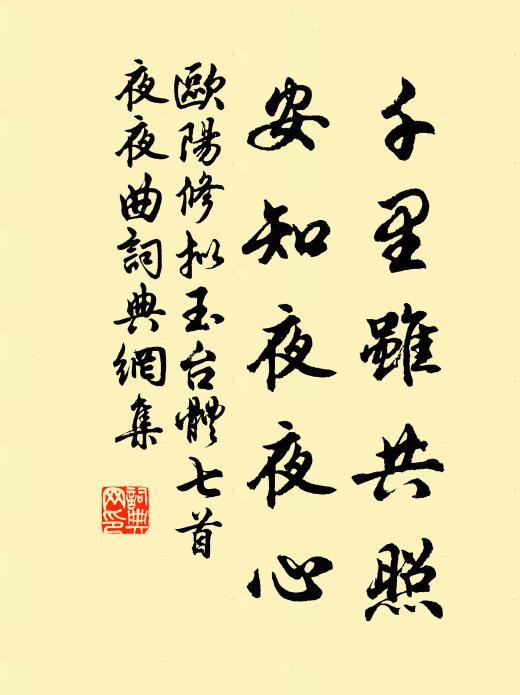 千里雖共照
安知夜夜心
歐陽修擬玉台體七首
夜夜曲詞典網集
詞典
网印